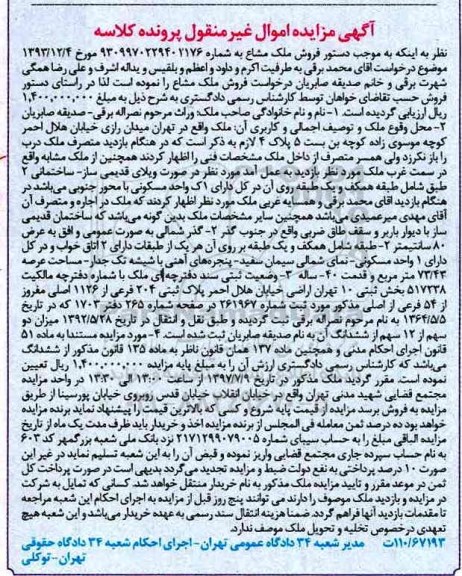 آگهی مزایده اموال غیرمنقول پرونده کلاسه
نظر به اینکه به موجب دستور فروش ملک مشاع به شماره ۹۳۰۹۹۷۰۲۲۹۴۰۲۱۷۶ مورخ ۱۳۹۳/۱۲/۴
موضوع درخواست اقای محمد برقی به طرفیت اکرم و داود و اعظم و بلقیس و یداله اشرف و علی رضا همگی
شهرت برقی و خانم صدیقه صابریان درخواست فروش ملک مشاع را نموده است لذا در راستای دستور
فروش حسب تقاضای خواهان توسط کارشناس رسمی دادگستری به شرح ذیل به مبلغ ۱,۴۰۰,۰۰۰,۰۰۰
ریال ارزیابی گردیده است. ۱- نام و نام خانوادگی صاحب ملک: وراث مرحوم نصراله برقی- صدیقه صابریان
۲- محل وقوع ملک و توصیف اجمالی و کاربری آن: ملک واقع در تهران میدان رازی خیابان هلال احمر
کوچه موسوی زاده کوچه بن بست ۵ پلاک ۴ لازم به ذکر است که در هنگام بازدید متصرف ملک درب
را باز نکرده ولی همسر متصرف از داخل ملک مشخصات فنی را اظهار کردند همچنین از ملک مشابه واقع
در سمت غرب ملک مورد نظر بازدید به عمل آمد مورد نظر در صورت ویلای قدیمی ساز- ساختمانی ۲
طبق شامل طبقه همکف و یک طبقه روی آن در کل دارای ۱ک واحد مسکونی با محور جنوبی می‌باشد در
هنگام بازدید اقای محمد برقی و همسایه غربی ملک مورد نظر اظهار کردند که ملک در اجاره و متصرف آن
آقای مهدی میرعمیدی می‌باشد همچنین سایر مشخصات ملک بدین گونه می‌باشد که ساختمان قدیمی
ساز با دیوار باربر و سقف طاق ضربی واقع در جنوب گذر ۲- گذر شمالی به صورت عمومی و افق به عرض
۸۰ سانتیمتر ۲- طبقه شامل همکف و یک طبقه بر روی آن هر یک از طبقات دارای ۲ اتاق خواب و در کل
دارای ۱ واحد مسکونی- نمای شمالی سیمان سفید- پنجره‌های آهنی با شیشه تک جدار- مساحت عرصه
۷۳/۴۳ متر مربع و قدمت ۴۰- ساله ۳- وضعیت ثبتی سند دفترچه‌ای ملک با شماره دفترچه مالکیت
۵۱۷۲۳۸ بخش ثبتی ۱۰ تهران اراضی خیابان هلال احمر پلاک ثبتی ۲۰۴ فرعی از ۱۱۲۶ اصلی مفروز
از ۵۴ فرعی از اصلی مذکور مورد ثبت شماره ۲۶۱۹۶۷ در صفحه شماره ۲۶۵ دفتر ۱۷۰۳ که در تاریخ
۱۳۶۴/۵/۵ به نام مرحوم نصراله برقی ثبت گردیده و طبق نقل و انتقال در تاریخ ۱۳۹۲/۵/۲۸ میزان دو
سهم از ۱۲ سهم از ششدانگ آن به نام صدیقه صابریان ثبت شده است. ۴- مورد مزایده مستندا به ماده ۵۱
قانون اجرای احکام مدنی و همچنین ماده ۱۳۷ همان قانون ناظر به ماده ۱۳۵ قانون مذکور از ششدانگ
می‌باشد که کارشناس رسمی دادگستری ارزش آن را به مبلغ پایه مزایده ۱,۴۰۰,۰۰۰,۰۰۰ ریال تعیین
نموده است. مقرر گردید ملک مذکور در تاریخ ۱۳۹۷/۷/۹ از ساعت ۱۳:۰۰ الی ۱۳:۳۰ در واحد مزایده
مجتمع قضایی شهید مدنی تهران واقع در خیابان انقلاب خیابان قدس روبروی خیابان پورسینا از طریق
مزایده به فروش برسد مزایده از قیمت پایه شروع و کسی که بالاترین قیمت را پیشنهاد نماید برنده مزایده
خواهد بود ده درصد ثمن معامله فی المجلس از برنده مزایده اخذ و خریدار باید ظرف مدت یک ماه از تاریخ
مزایده الباقی مبلغ را به حساب سیبای شماره ۲۱۷۱۲۹۹۰۷۹۰۰۵ نزد بانک ملی شعبه بزرگمهر کد ۶۰۳
به نام حساب سپرده جاری مجتمع قضایی واریز نموده و قبض آن را به این شعبه تسلیم نماید در غیر این
صورت ۱۰ درصد پرداختی به نفع دولت ضبط و مزایده تجدید می‌گردد بدیهی است در صورت پرداخت کل
ثمن در موعد مقرر و تایید مزایده ملک مذکور به نام خریدار منتقل خواهد شد. کسانی که تمایل به شرکت
در مزایده و بازدید ملک موصوف را دارند می توانند پنج روز قبل از مزایده به اجرای احکام این شعبه مراجعه
تا مقدمات بازدید آنها فراهم گردد. ضمنا هزینه انتقال سند رسمی به عهده خریدار می‌باشد و این شعبه هیچ
تعهدی درخصوص تخلیه و تحویل ملک موصف ندارد.
۱۱۰/۶۷۱۹۳ت مدیر شعبه ۳۴ دادگاه عمومی تهران- اجرای احکام شعبه ۳۴ دادگاه حقوقی
تهران- توکلی